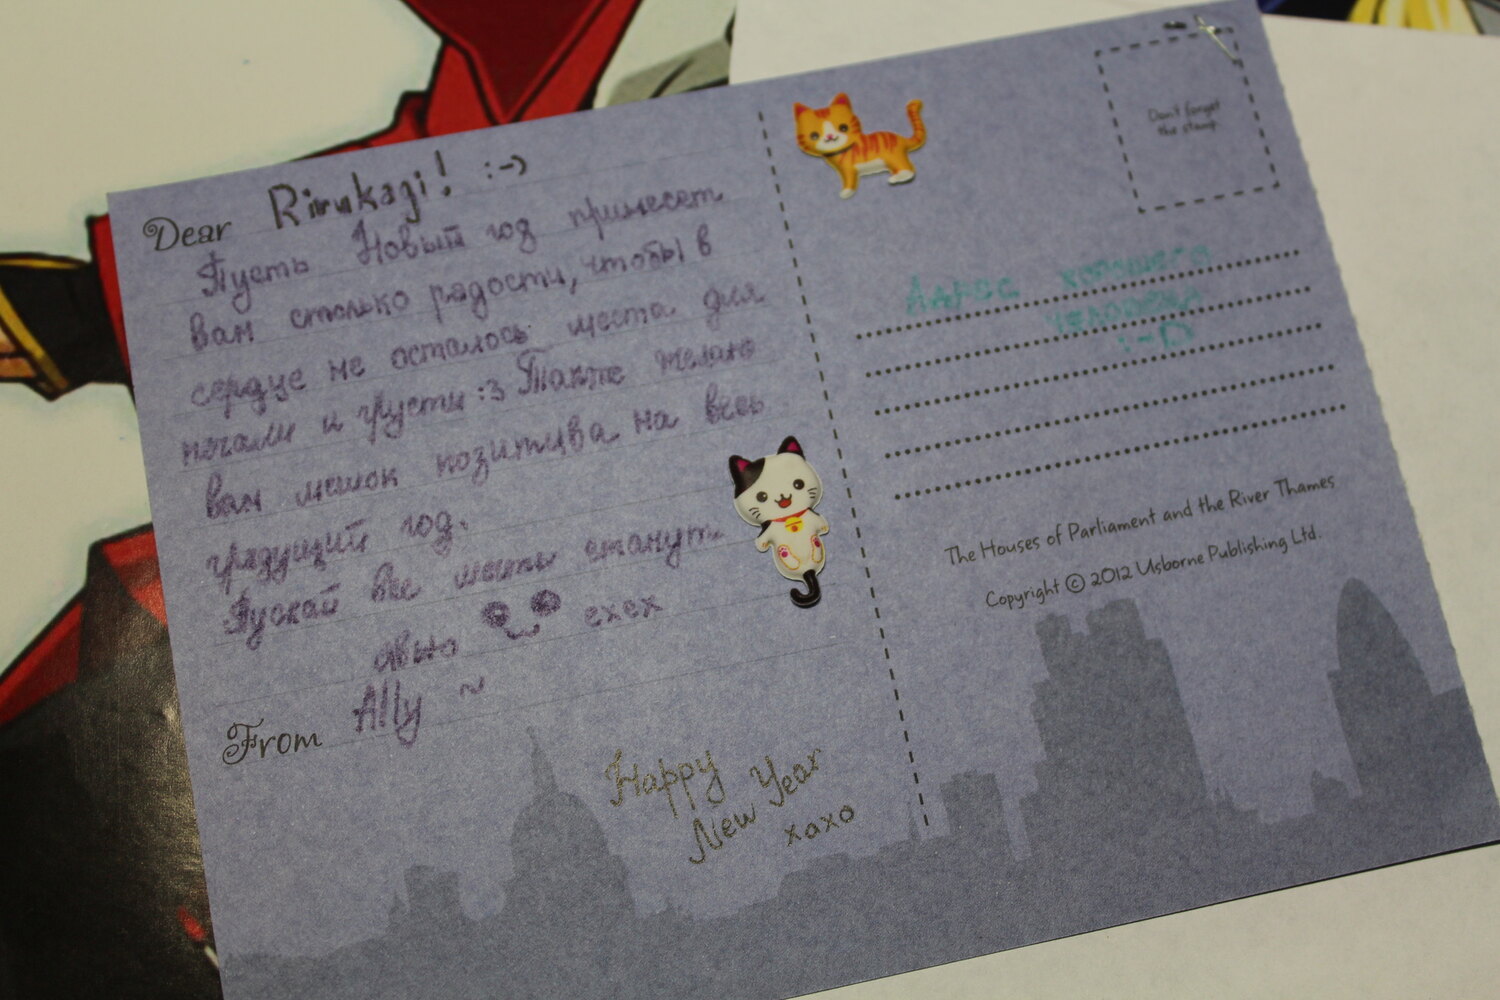 Dear Rirukagi! :-)
Пусть Новый год принесет
вам столько радости, чтобы в
сердце не осталось места для
печали и грусти :3 Также желаю
вам мешок позитива на весь
грядущий год.
Пускай все мечты станут
явью ехех
From Ally ~
Happy
New Year
xoxo
Don't forget
the stamp
Адрес хорошего
человека
:-D
The Houses of Parliament and the River Thames
Copyright © 2012 Usborne Publishing Ltd.